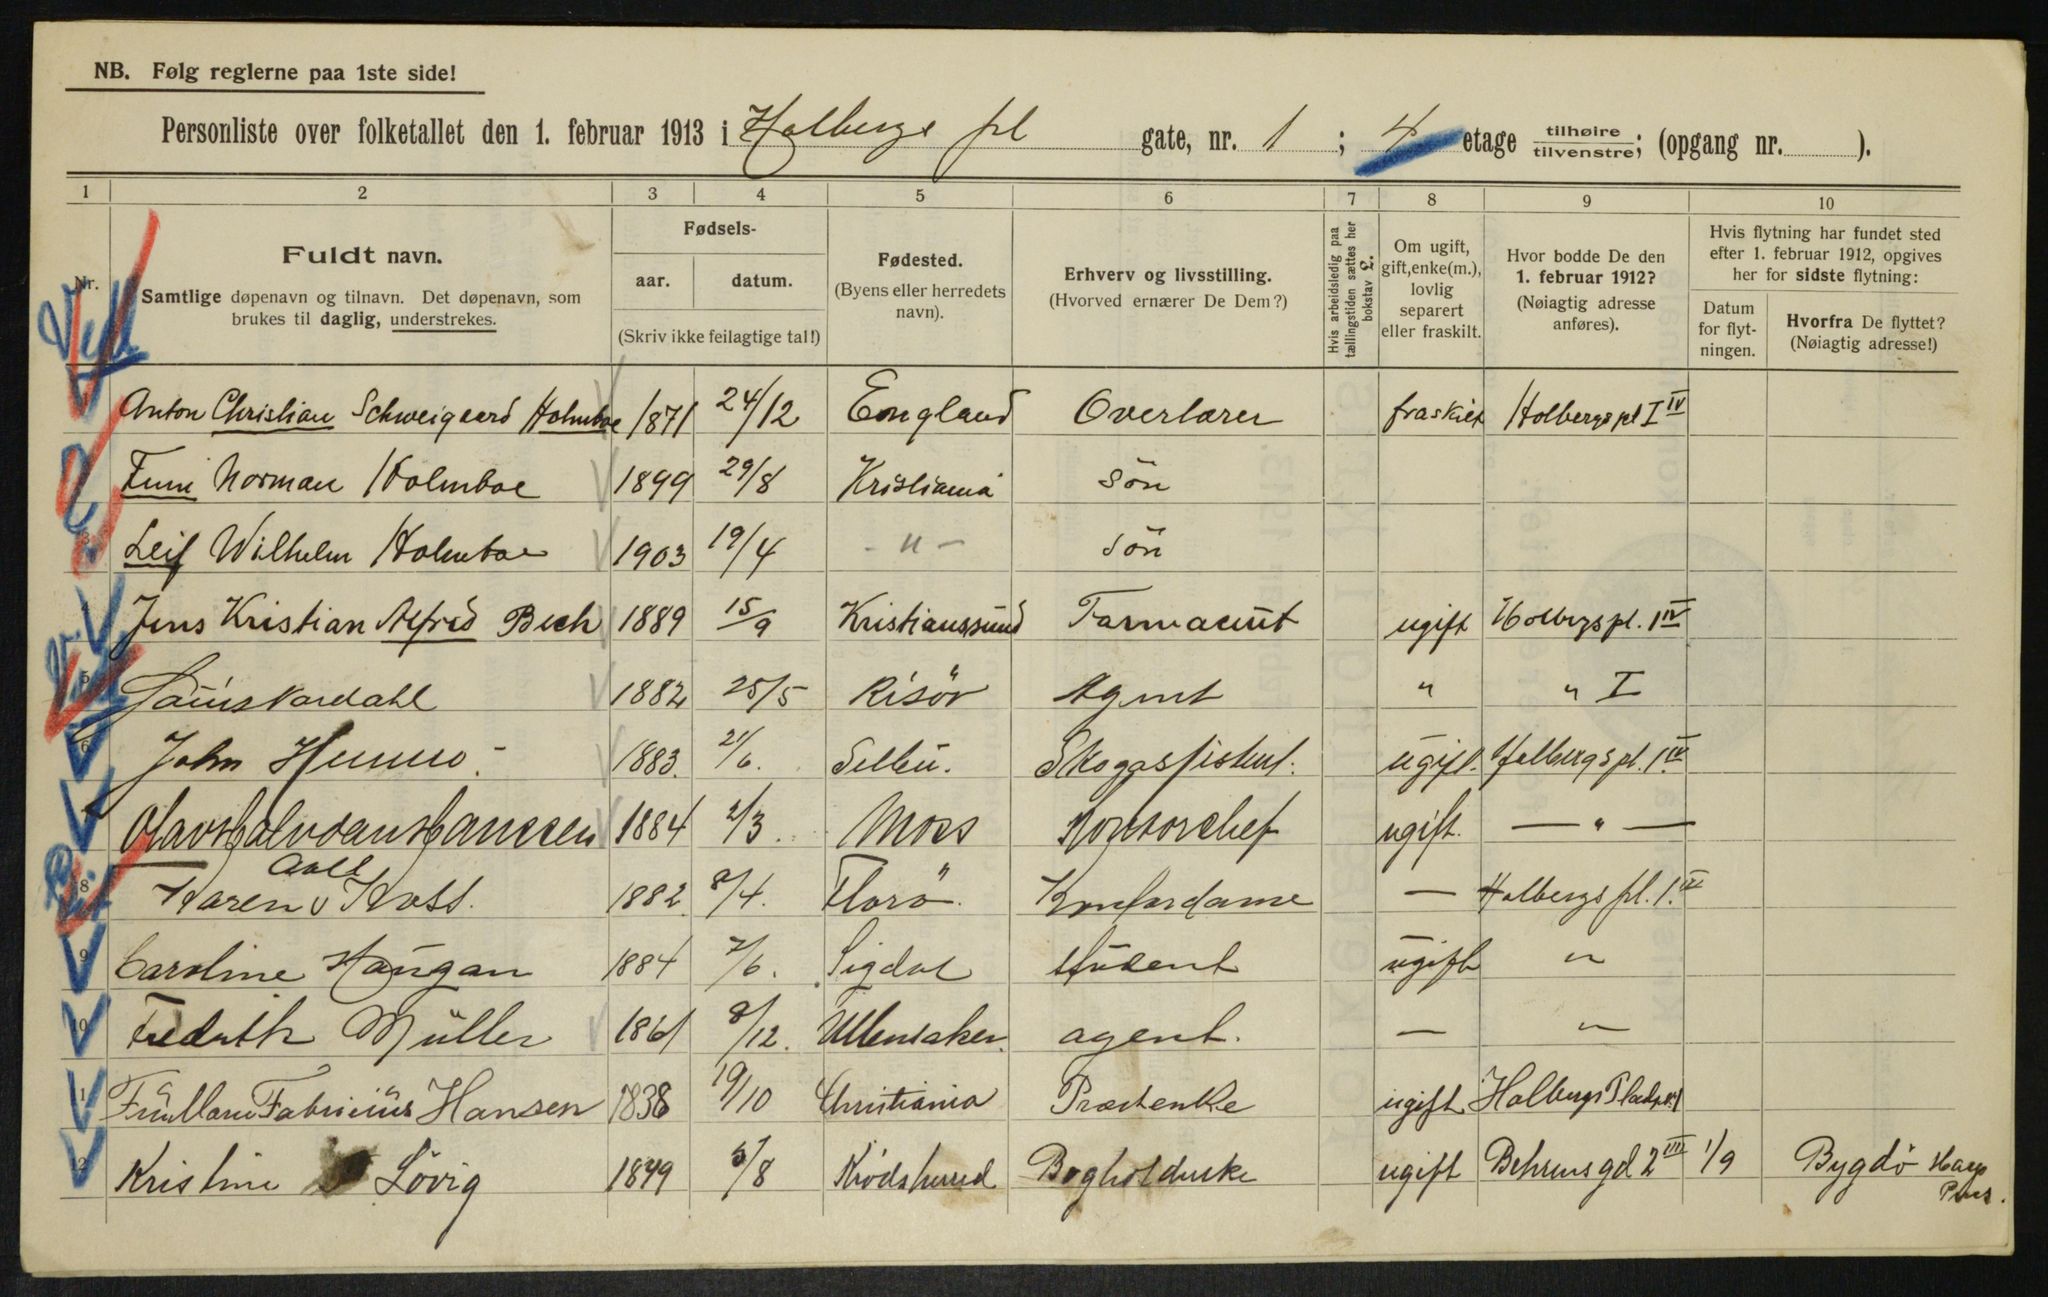 NB. Følg reglerne paa 1ste side!
Personliste over folketallet den 1. februar 1913 i Holbergs pl gate, nr. 1 ; 4 etage tilhøire tilvenstre; (opgang nr. ).
1 2 3 4 5 6 7 8 9 10
Nr.
Fuldt navn.
Samtlige døpenavn og tilnavn. Det døpenavn, som
brukes til daglig, understrekes.
Fødsels-
aar. datum.
(Skriv ikke feilagtige tal!)
Fødested.
(Byens eller herredets
navn).
Erhverv og livsstilling.
(Hvorved ernærer De Dem?)
Hvis arbeidsledig paa
tællingstiden sættes her
bokstav £.
Om ugift,
gift, enke(m.),
lovlig
separert
eller fraskilt.
Hvor bodde De den
1. februar 1912?
(Nøiagtig adresse
anføres).
Hvis flytning har fundet sted
efter 1. februar 1912, opgives
her for sidste flytning:
Datum
for flyt-
ningen.
Hvorfra De flyttet?
(Nøiagtig adresse!)
Anton Christian Schweigaard Holmboe 1871 24/12 England Overlærer fraskilt Holbergs pl I IV
Norman Holmboe 1899 29/8 Kristiania Sön
3 Leif Wilhelm Holmboe 1903 19/4 - " - Sön
Jens Kristian Alfred Bech 1889 15/9 Kristianssund Farmaceut ugift Holbergs pl. 1 IV
5 1882 25/5 Risör Agent " " I
6 John 1883. 21/6. Selbu. ugift. Holbergs pl. 1. IV
Olav Halvdan Hanssen 1884 2/3. Moss Kontorchef ugift. — " —
8 Karen Aall Koss. 1882. 8/4. Florö. Kontordame — Holbergs pl. 1. IV
9 Caroline Haugan 1884 7/6. Sigdal student ugift "
10 Fredrik Müller 1861 8/12. Ullensaker. agent. — "
11 Fabricius Hansen 1838 19/10 Christiania Præstenke ugift Holbergs Plads
12 Kristine Lövig 1879 5/8 Kródsherred Bogholderske ugift Behrens gd 2 III 1/9 Bygdö